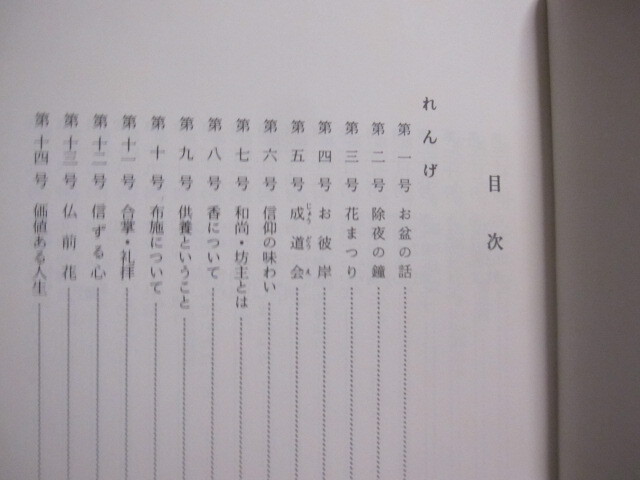 目次
れんげ
第一号 お盆の話
第二号 除夜の鐘
第三号 花まつり
第四号 お彼岸
第五号 成道会
じょうどうえ
第六号 信仰の味わい
第七号 和尚・坊主とは
第八号 香について
第九号 供養ということ
第十号 布施について
第十一号 合掌・礼拝
第十二号 信ずる心
第十三号 仏前花
第十四号 価値ある人生